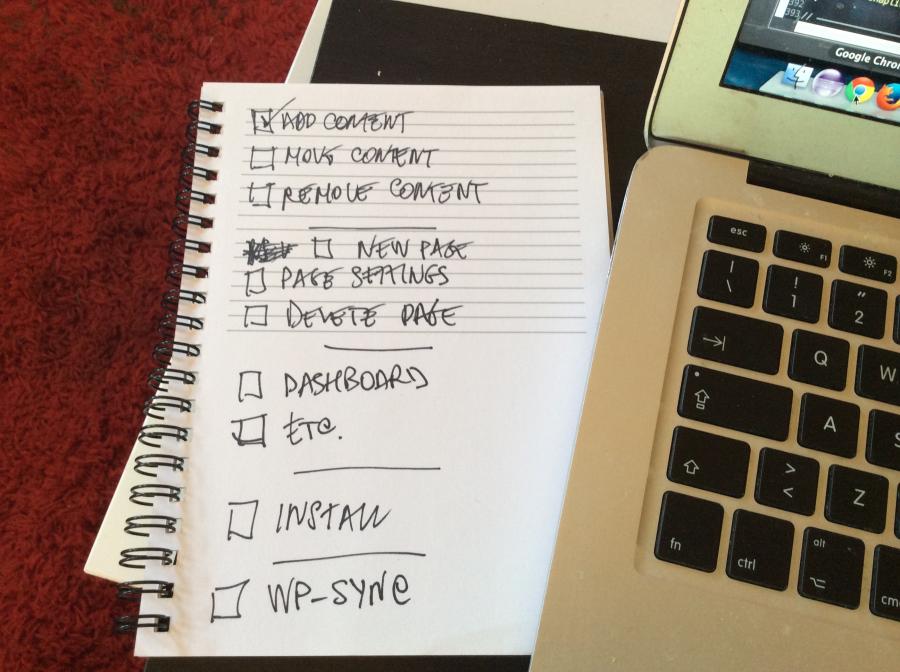 ADD CONTENT
MOVE CONTENT
REMOVE CONTENT
NEW PAGE
PAGE SETTINGS
DELETE PAGE
DASHBOARD
ETC.
INSTALL
WP-SYNC
392
393//
Google Chro
esc
F1
F2
| \
! 1
" 2
Q
W
A
S
> <
Z
fn
ctrl
alt
cm